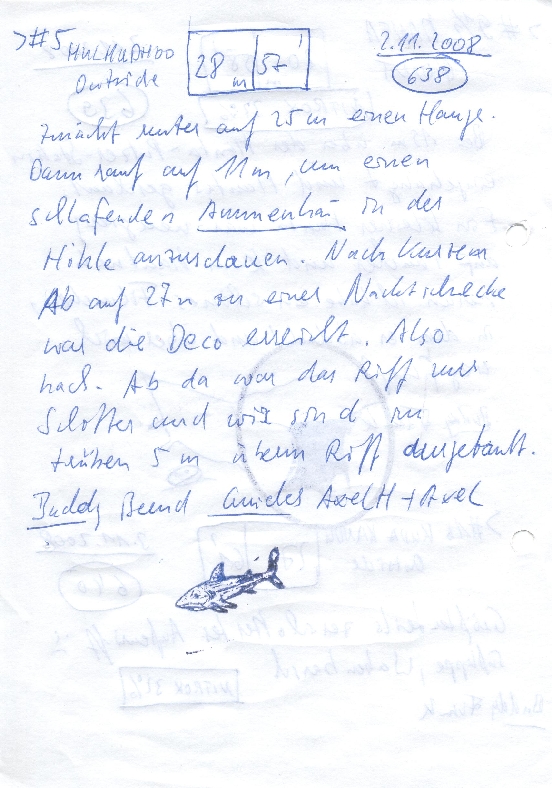 >#5 HULHUDHOO 28m 57' 2.11.2008
Outside 638
zunächst runter auf 25m einen Hange.
Dann rauf auf 11m, um einen
schlafenden Ammenhai in der
Höhle anzuschauen. Nach kurzem
Ab auf 27m zu einer Nacktschnecke
war die Deco erreicht. Also
hoch. Ab da war das Riff nur
Schotter und wir sind im
trüben 5m überm Riff
Buddy Bernd Guides Axel H + Axel
NITROX